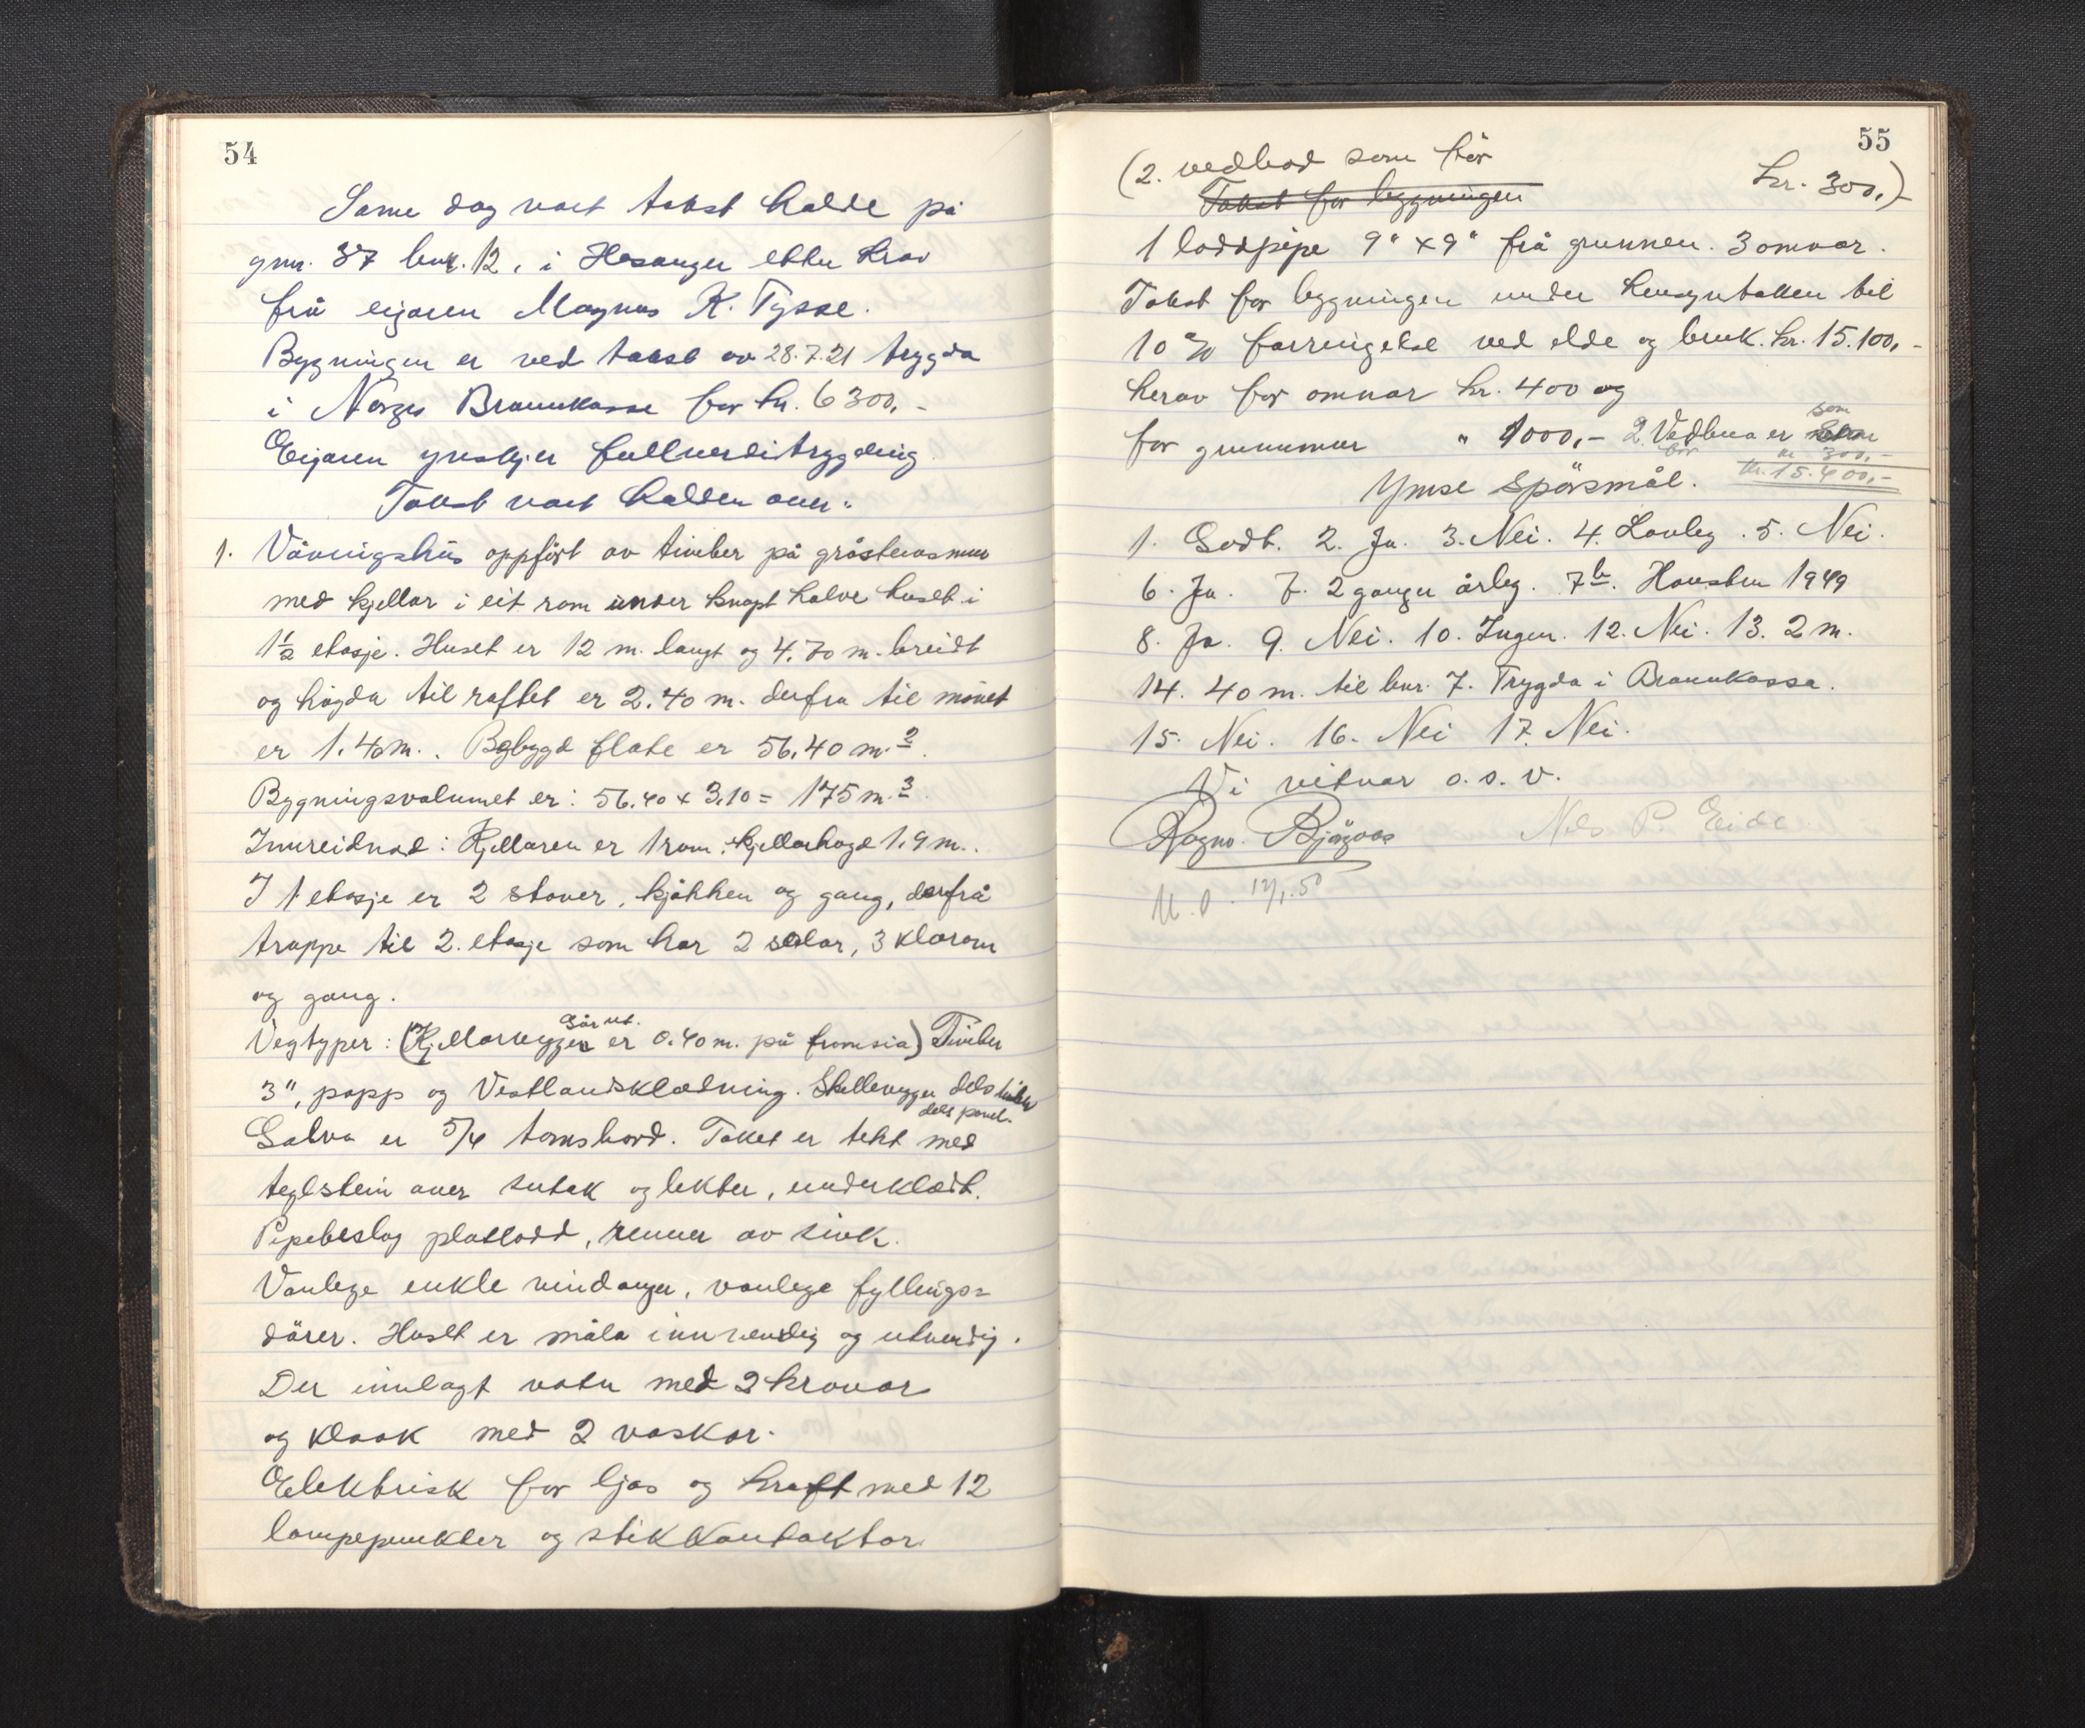 54
Same dag vart takst halde på
gnr. 37 bnr. 12, i Hosanger etter krav
frå eigaren Magnus K. Tysse.
Bygningen er ved takst av 28.7.21 trygda
i Norges Brannkasse for kr. 6300,-
Eigaren ynskjer fullverditrygding
Takst vart halden over:
1. Våningshus oppført av timber på gråsteinsmur
med kjellar i eit rom under knapt halve huset i
1½ etasje. Huset er 12 m. langt og 4.70 m. breidt
og høgda til raftet er 2.40 m. derfra til mønet
er 1.40m.. Bebygd flate er 56.40 m.²
Bygningsvolumet er: 56.40 x 3.10 = 175 m.³
Innreidnad: Kjellaren er 1 rom, kjellarhøgd 1,9 m..
I 1 etasje er 2 stover, kjøkken og gang, derfrå
trappe til 2. etasje som har 2 salar, 3 klarom
og gang.
går ut.
Vegtyper: (Kjellarveggen er 0.40 m. på fromsia) Timber
3", papp og Vestlandsklædning. Skillevegger dels timber
dels panel.
Golva er 5/4 tomsbord. Taket er tekt med
teglstein over sutak og lekter, underklædt.
Pipebeslag platlodd, renner av sink.
Vanlege enkle vindauger, vanlege fyllings=
dörer. Huset er måla innvendig og utvendig.
Der innlagt vatn med 2 kranar
og kloak med 2 vaskar.
Elektrisk for ljos og kraft med 12
lampepunkter og stikkontaktar
55
(2. vedbod som för kr. 300,)-
Takst for bygningen
1 loddpipe 9" x 9" frå grunnen. 3 omnar.
Takst for bygningen under hensyntaken til
10 % forringelse ved elde og bruk. kr. 15.100,-
herav for omnar kr. 400 og
for grunnmur " 1000,- 2. Vedbua er som
för kr 300,-
Kr. 15.400,-
Ymse Spörsmål.
1. Godt. 2. Ja. 3. Nei. 4. Lovleg. 5. Nei.
6. Ja. 7. 2 ganger årleg. 7b. Hausten 1949
8. Ja. 9. Nei. 10. Ingen. 12. Nei. 13. 2 m.
14. 40 m. til bnr. 7. Trygda i Brannkassa.
15. Nei. 16. Nei 17. Nei.
Vi vitnar o.s.v.
Nils P. Eide
U.S. 12/1.50